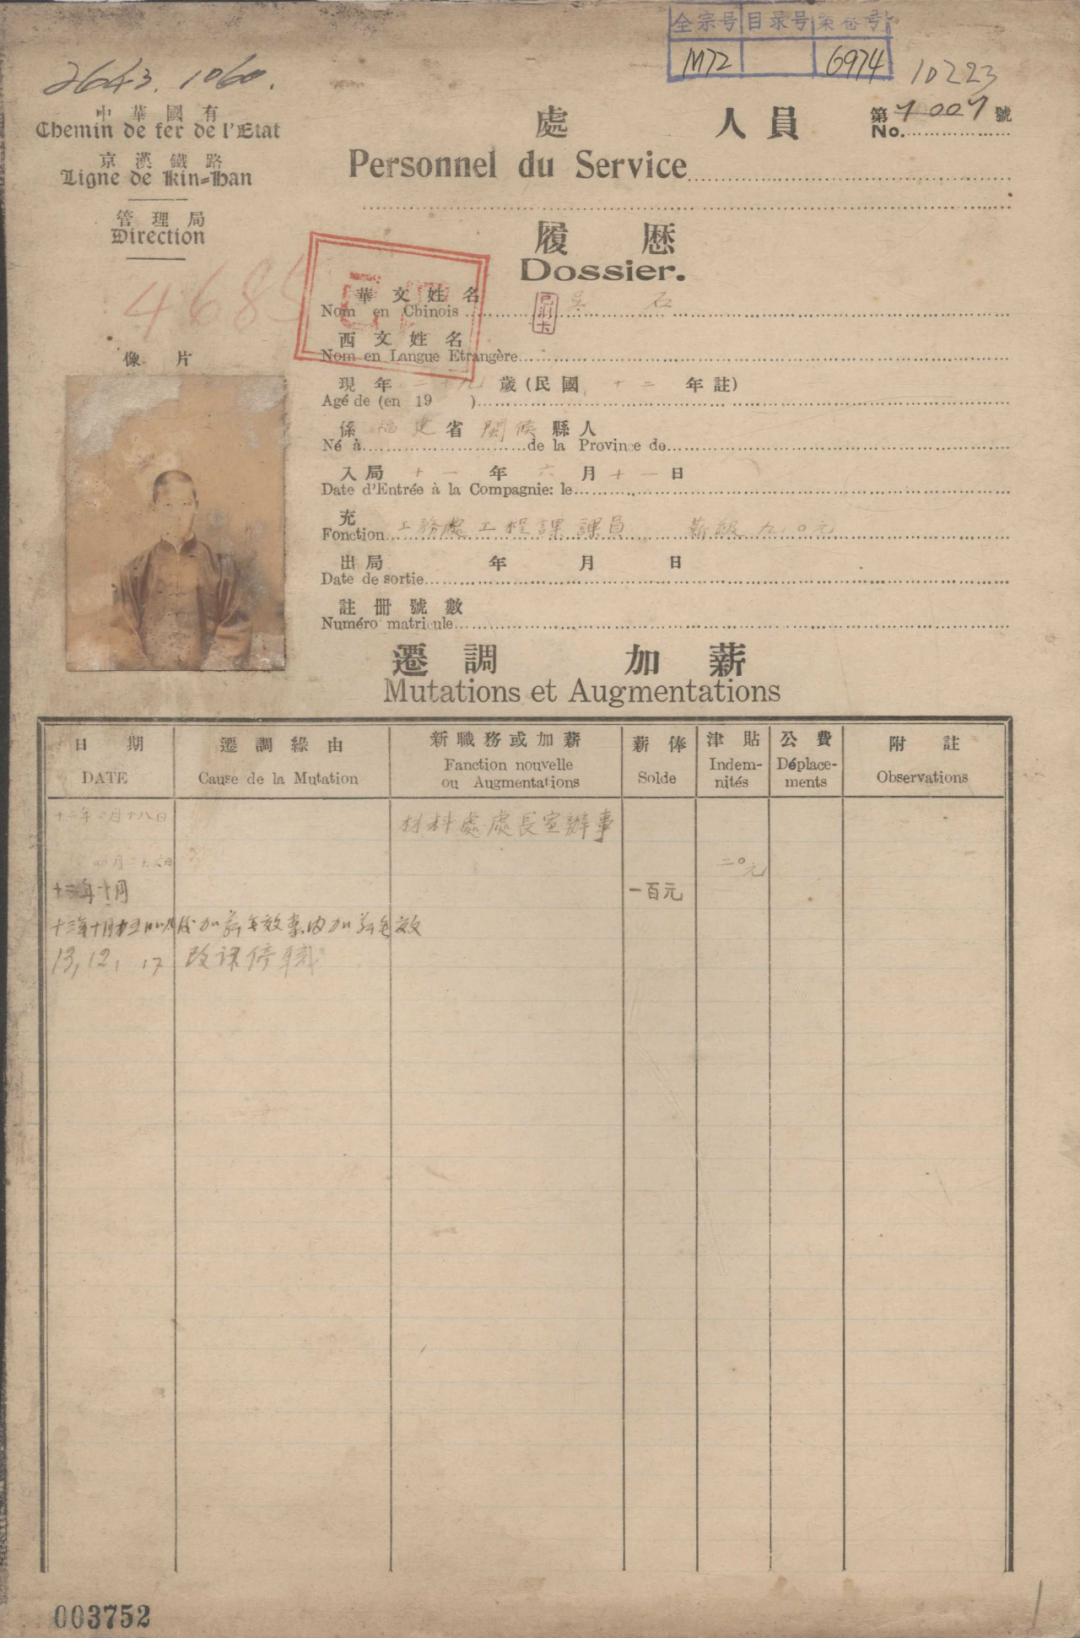 全宗号 目录号 案卷号
M72 6974
2643. 1060.
10223
中華國有
Chemin de fer de l'Etat
京漢鐵路
Ligne de Kin=Han
管理局
Direction
處 人員
Personnel du Service
第 號
No.
履歷
Dossier.
華文姓名 吳 石
Nom en Chinois
已制卡
西文姓名
Nom en Langue Etrangère
像片
現年二十九歲(民國十二年註)
Agé de (en 19 )
係福建省閩侯縣人
Né à de la Province de
入局十一年六月十一日
Date d'Entrée à la Compagnie: le
充
Fonction 工務處工程課課員 薪級九〇元
出局 年 月 日
Date de sortie
註冊號數
Numéro matricule
遷調 加薪
Mutations et Augmentations
日期 遷調緣由 新職務或加薪 薪俸 津貼 公費 附註
DATE Cause de la Mutation Fanction nouvelle ou Augmentations Solde Indem-nités Déplace-ments Observations
十二年 月十八日 材料處處長室辦事
二〇元
十三年十月 一百元
十三年十月 加薪 效 加薪 效
13, 12, 17 改課停職
003752
1